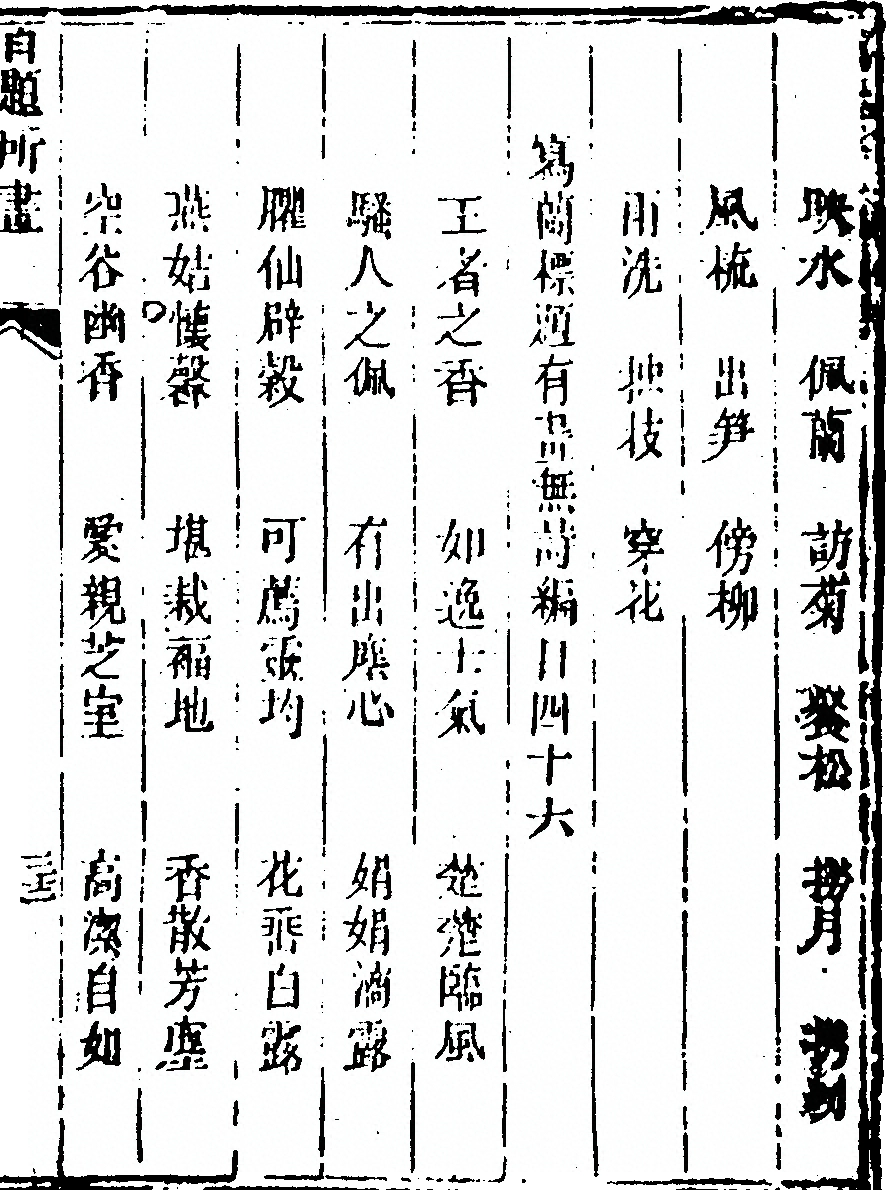 映水　佩蘭　訪菊　餐松　撈月
風梳　出筍　傍柳
雨洗　拙枝　穿花
寫蘭標題有畫無詩編目四十六
王者之香　如逸士氣　楚楚臨風
騷人之佩　有出塵心　娟娟滴露
臞仙辟穀　可薦靈均　花垂白露
燕姞懷馨　堪栽福地　香散芳塵
空谷幽香　愛親芝室　高潔自如
自題所畫